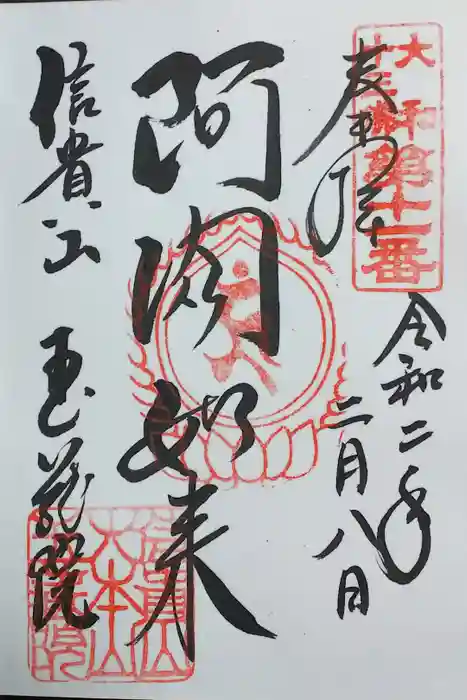 奉拝
大和十三佛第十一番
令和二年
二月八日
阿閦如来
信貴山
玉蔵院